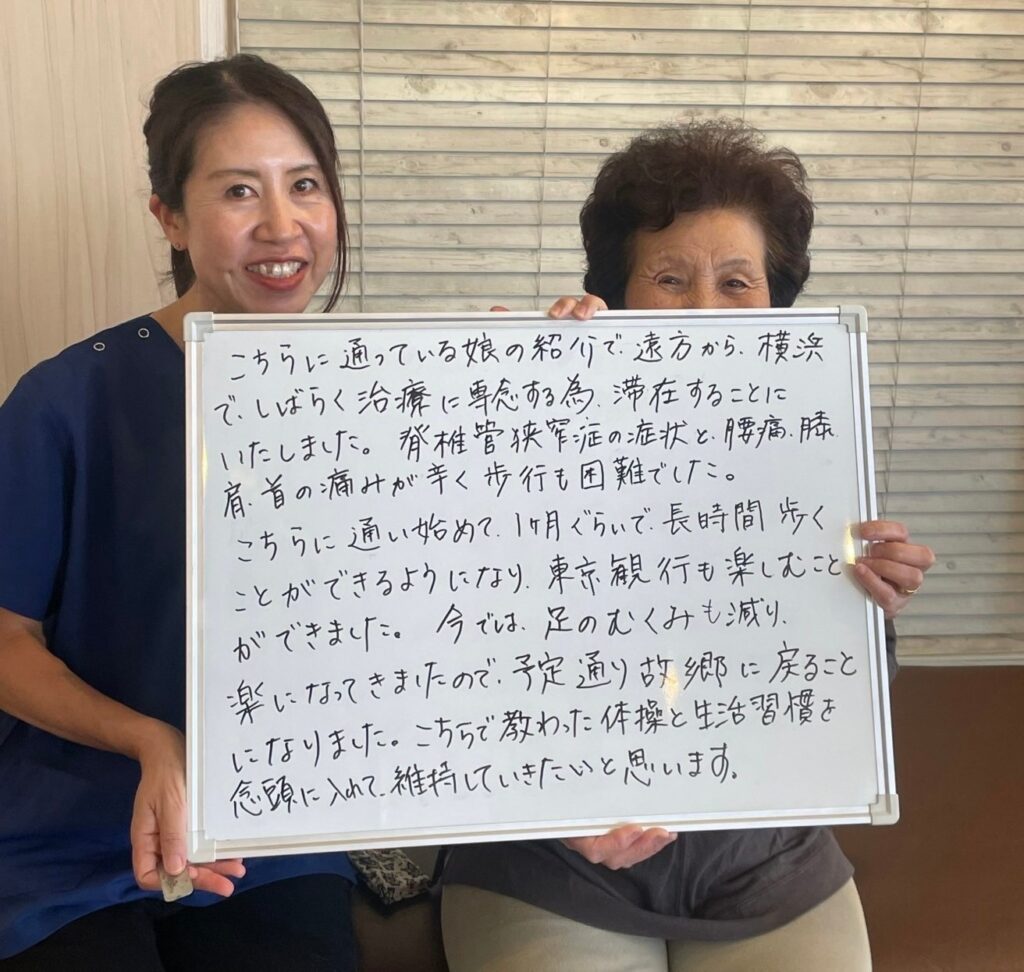 こちらに通っている娘の紹介で、遠方から、横浜
で、しばらく治療に専念する為、滞在することに
いたしました。脊椎管狭窄症の症状と、腰痛、膝、
肩、首の痛みが辛く歩行も困難でした。
こちらに通い始めて、1ヶ月ぐらいで、長時間歩く
ことができるようになり、東京観行も楽しむこと
ができました。今では、足のむくみも減り、
楽になってきましたので、予定通り故郷に戻ること
になりました。こちらで教わった体操と生活習慣を
念頭に入れて、維持していきたいと思います。